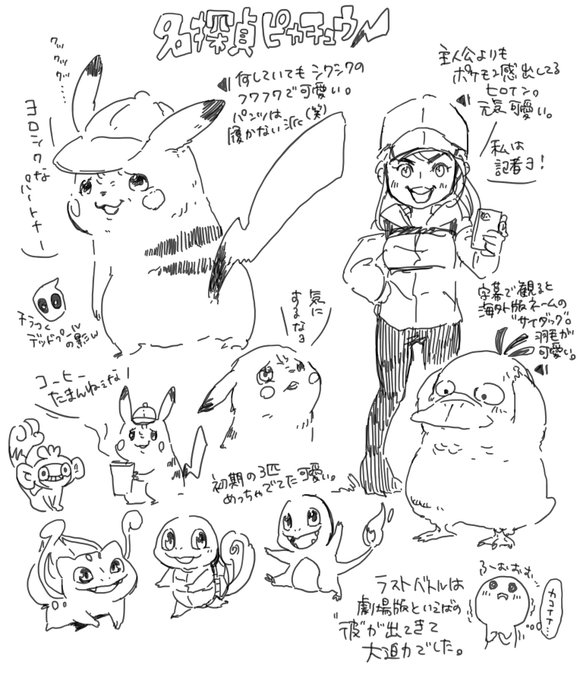 名探偵ピカチュウ
クックックッ…
ヨロシクな
パートナー
何していてもシワシワの
フワフワで可愛い。
パンツは
履かない派(笑)
主人公よりも
ポケモン感出してる
ヒロイン。
元気可愛い。
私は
記者ヨ!
チラつく
デッドプール
の影w
気に
するなヨ
字幕で観ると
海外版ネームの
"サイダッグ"。
羽毛が
可愛い。
コーヒー
たまんねぇな!
初期の3匹
めっちゃでてた可愛い。
ラストバトルは
劇場版といえばの
"彼"が出てきて
大迫力でした。